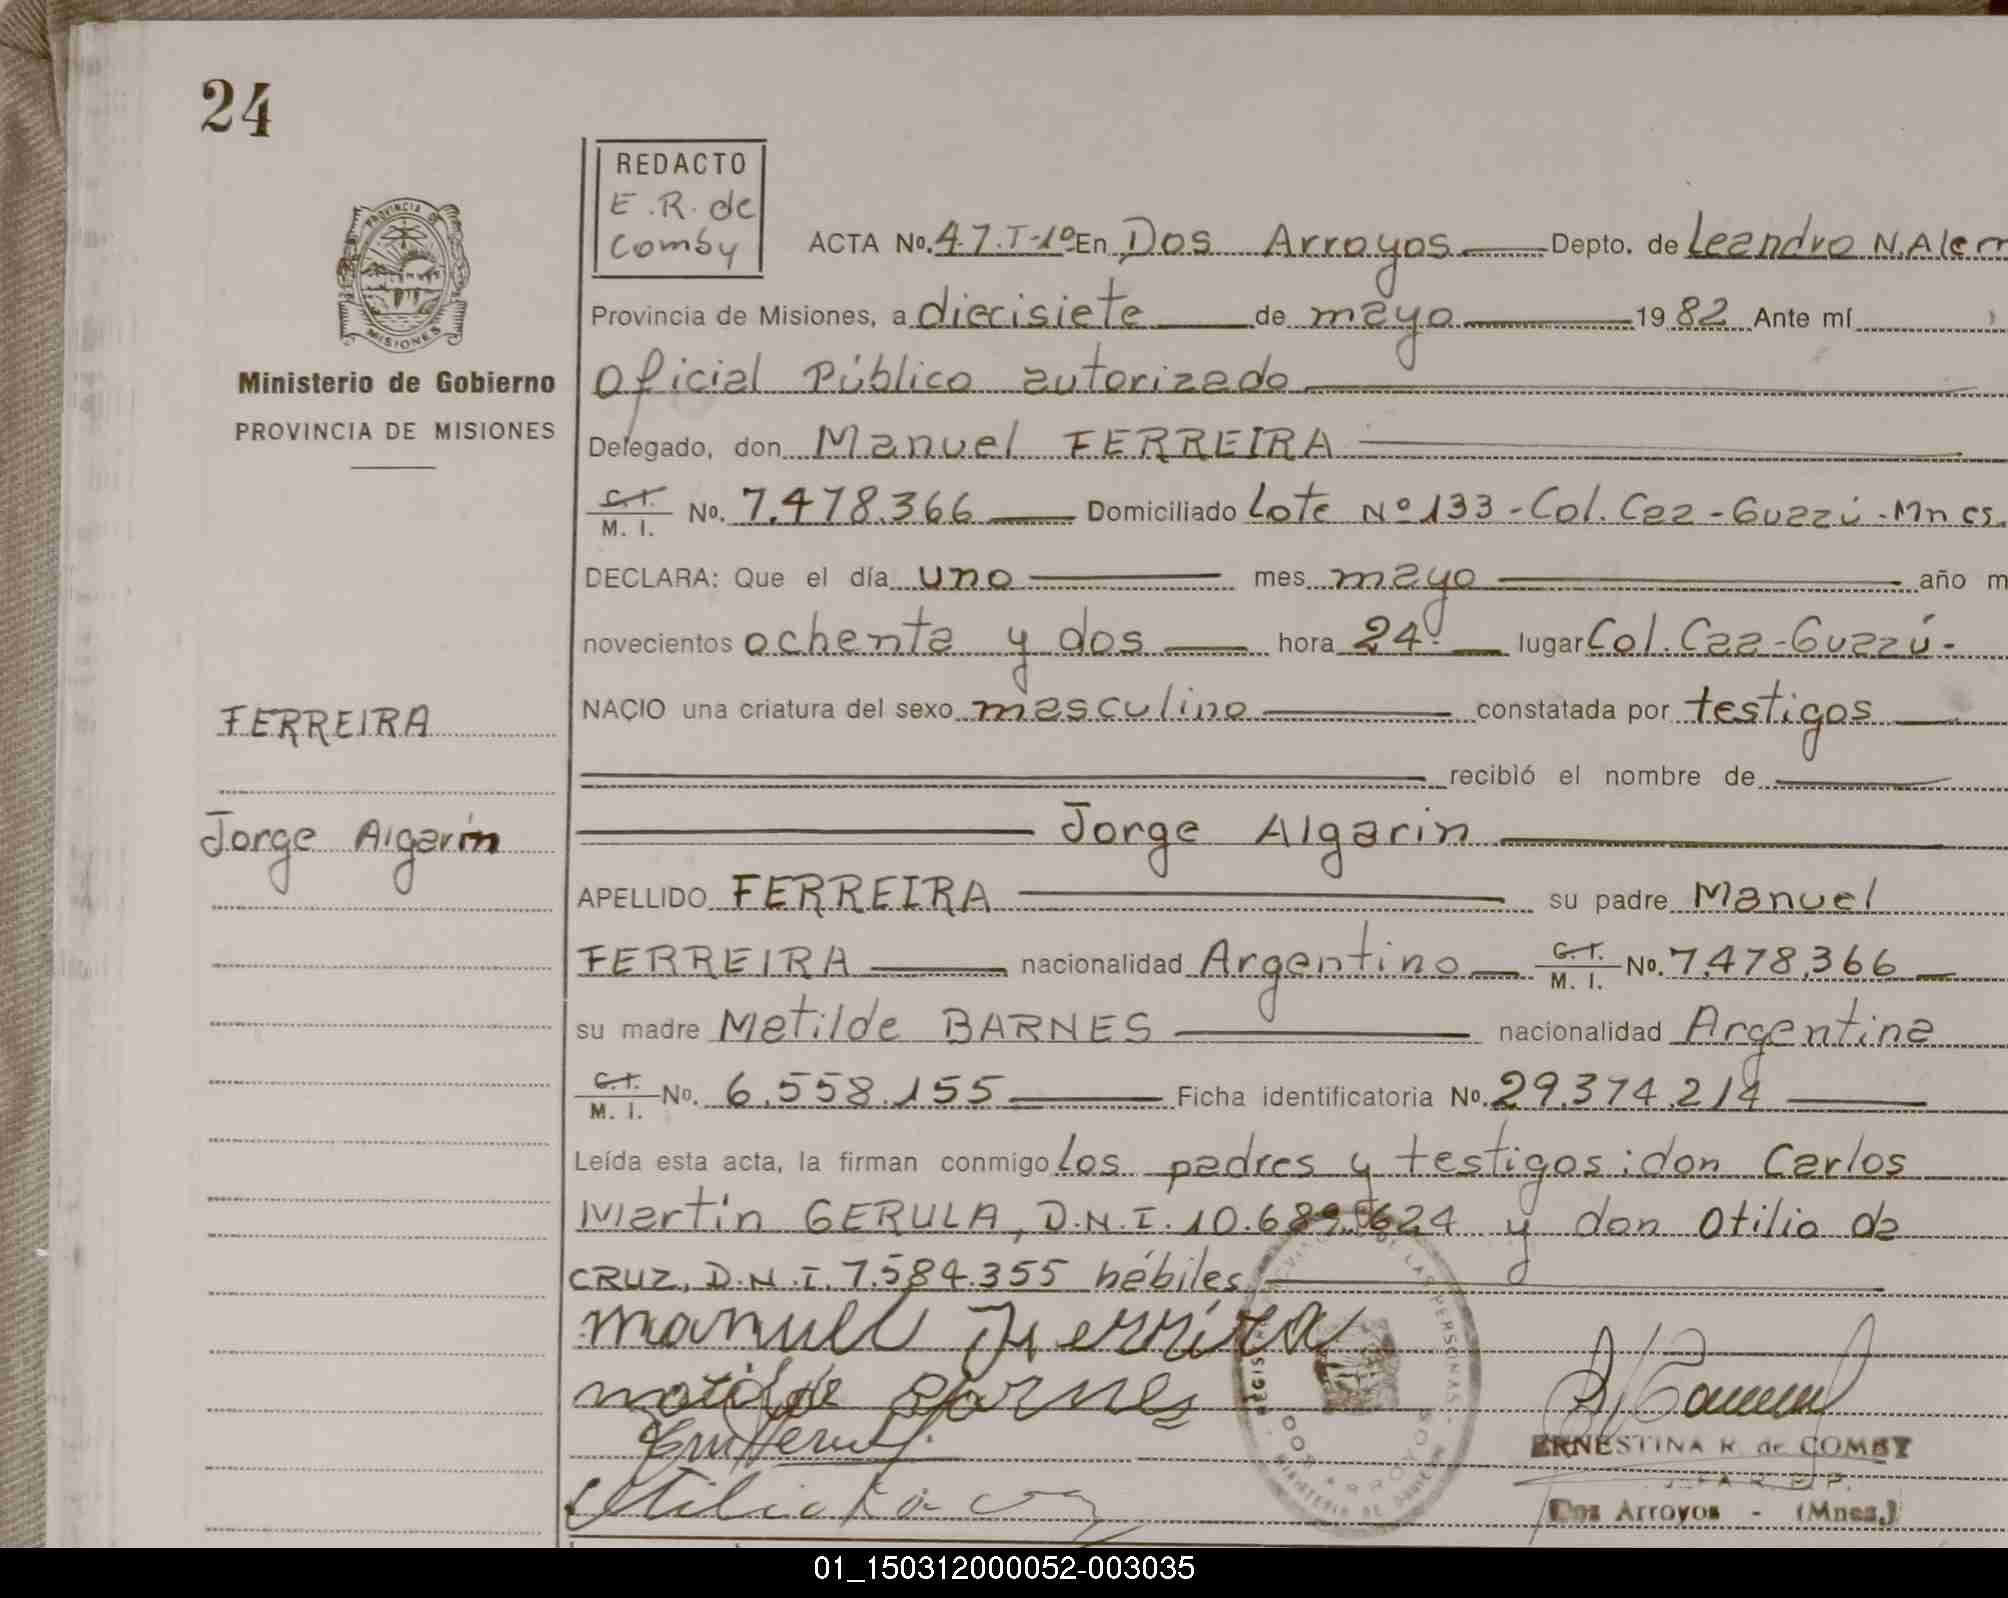 24
REDACTO
E.R. de
Comby
PROVINCIA DE
MISIONES
Ministerio de Gobierno
PROVINCIA DE MISIONES
ACTA No. 47.T-1º En Dos Arroyos Depto. de Leandro N. Alem
Provincia de Misiones, a diecisiete de mayo 1982 Ante mí
Oficial Público autorizado
Delegado, don Manuel FERREIRA
C.I. M. I. No. 7.478.366 Domiciliado Lote Nº 133 - Col. Caa - Guazú - Mnes.
DECLARA: Que el día uno mes mayo año m
novecientos ochenta y dos hora 24. lugar Col. Caa-Guazú-
NACIO una criatura del sexo masculino constatada por testigos
recibió el nombre de
FERREIRA
Jorge Algarín
Jorge Algarin
APELLIDO FERREIRA su padre Manuel
FERREIRA nacionalidad Argentino C.I. M. I. No. 7.478.366
su madre Matilde BARNES nacionalidad Argentina
C.I. M. I. No. 6.558.155 Ficha identificatoria No. 29.374.214
Leída esta acta, la firman conmigo los padres y testigos: don Carlos
Martín GERULA, D.N.I. 10.689.624 y don Otilio da
CRUZ, D.N.I. 7.584.355 hábiles
manuel Ferrira
matilde Barnes
Otilio da cruz
DOS ARROYOS
ERNESTINA R. de COMBY
Dos Arroyos - (Mnes.)
01_150312000052-003035